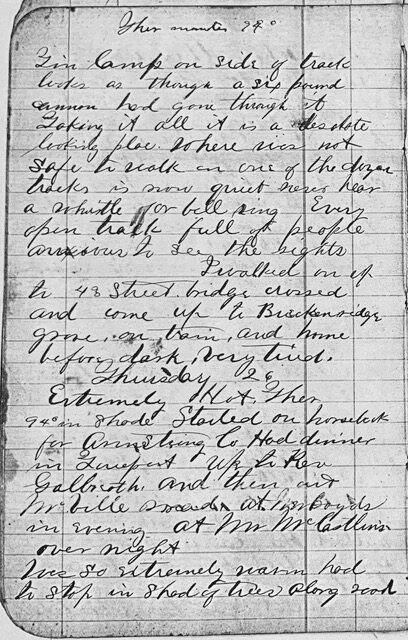 Ther minutes 94°
Tin Camp on side of track
looks as though a six pound
cannon had gone through it
Taking it all it is a desolate
looking place. Where was not
safe to walk on one of the dozen
tracks is now quiet never hear
a whistle or bell ring Every
open track full of people
anxious to see the sights
I walked on up
to 48 Street bridge crossed
and come up to Brackenridge
grove, on train, and home
before dark, very tired.
Thursday 26
Extremely Hot, Ther
94° in shade Started on horseback
for Armstrong Co Had dinner
in Freeport Up to Rev
Galbreath, and then out
McVille at Boyds
in evening at Mr McCaslins
over night
Was so extremely warm had
to stop in shad of trees along road